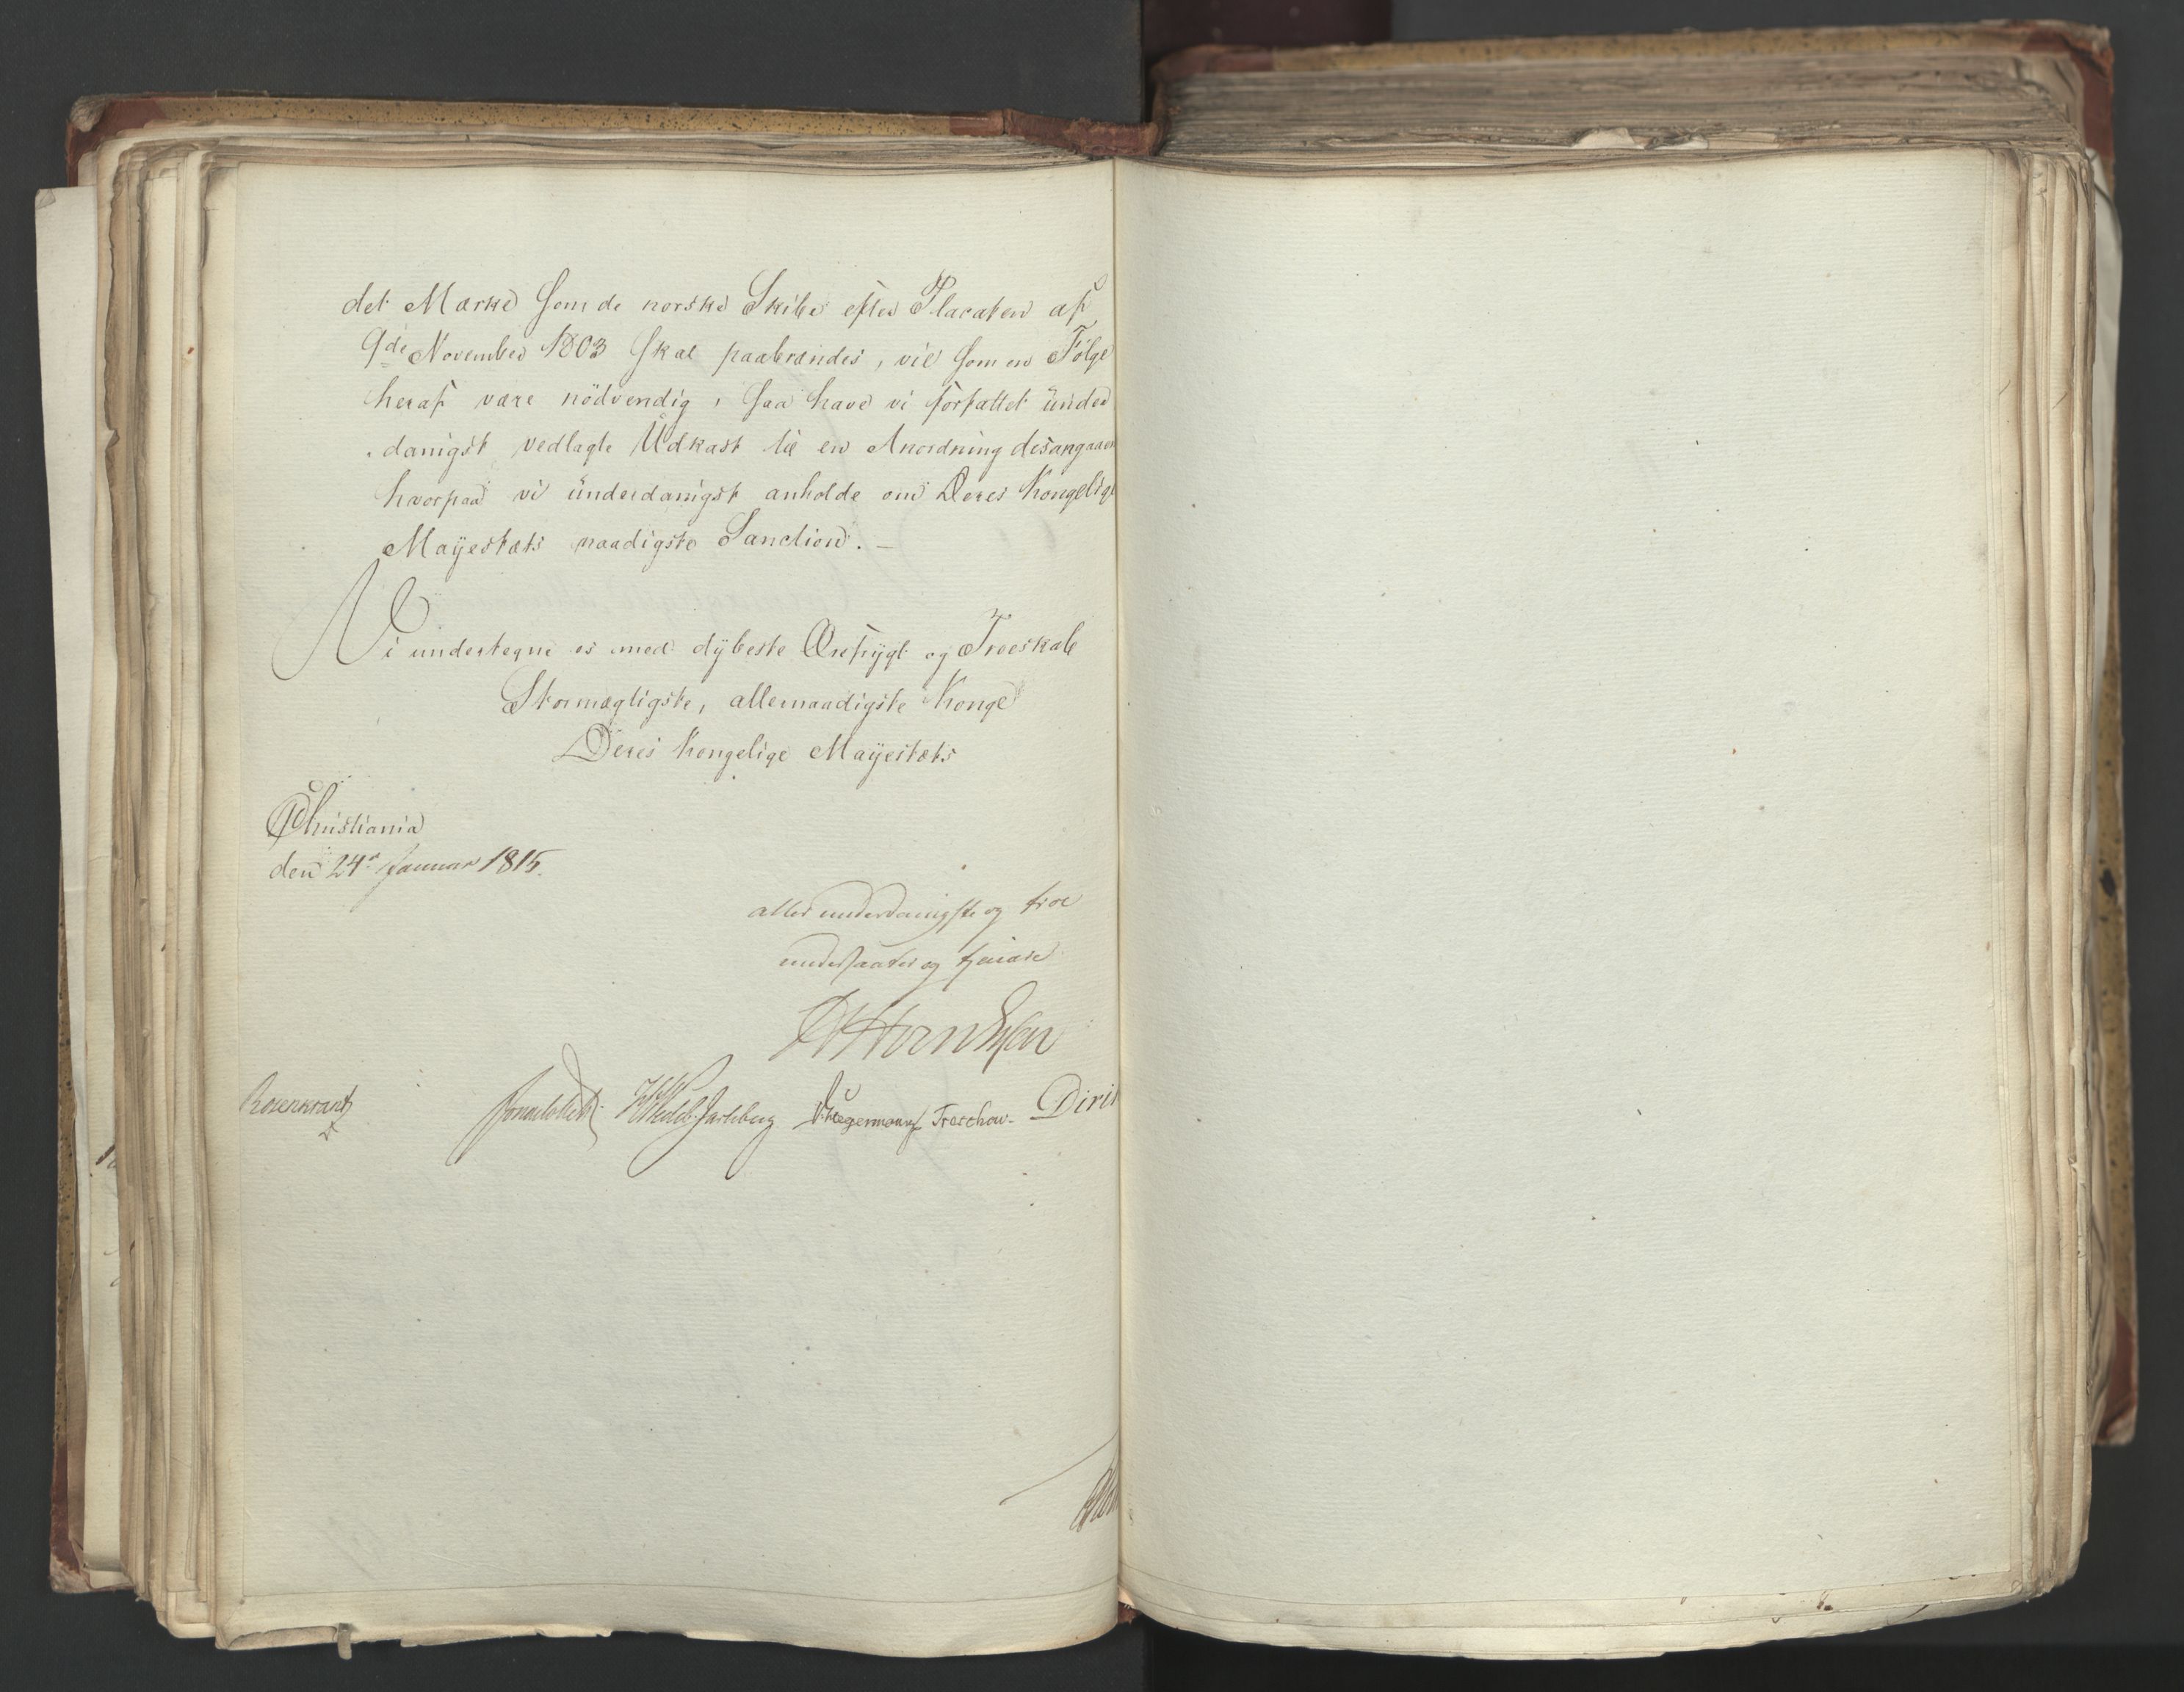 det Mærke som de norske Skibe efter Placaten af
9de November 1803 skal paabrændes, vil som en Følge
heraf være nödvendig, saa have vi forfattet under
danigst vedlagte Udkast til en Anordning desangaaen
hvorpaa vi underdanigst anholde om Deres Kongelige
Mayestæts naadigste Sanction. —
Vi undertegne os med dybeste Ærefrygt og Troeskab
Stormægtigste, allernaadigste Konge
Deres Kongelige Mayestæts
Christiania
den 24de Januar 1815.
allerunderdanigste og troe
undersaatter og tjenere
Rosenkrantz
Wedel-Jarlsberg
D. Hegermann
Treschow
Diri